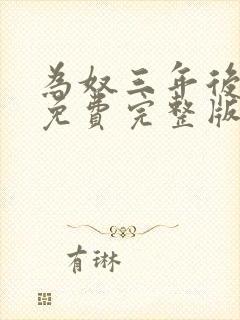 為奴三年後
免費完整版
有琳